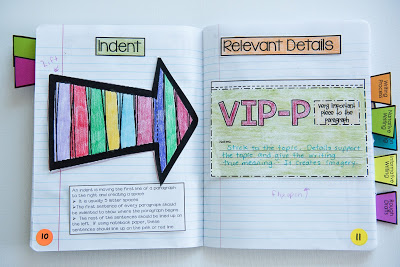 Indent
Lift
An indent is moving the first line of a paragraph
to the right and creating a space.
It is usually 5 letter spaces.
The first sentence of every paragraph should
be indented to show where the paragraph begins.
The rest of the sentences should be lined up on
the left. If using notebook paper, these
sentences should line up on the pink or red line.
10
Relevant Details
VIP-P
Very important
piece to the
paragraph
Stick to the topic. Details support
the topic and give the writing
true meaning. It creates imagery.
flip open
11
Writing
Process
Narrative
Writing
Writing
Writing